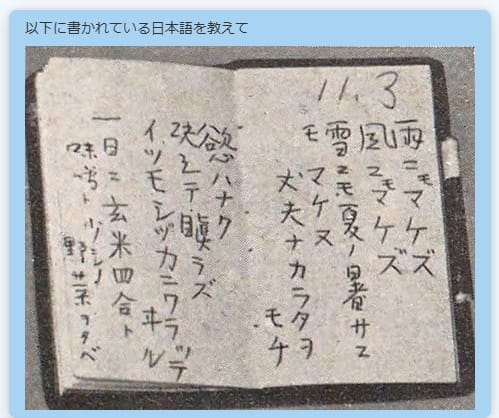 以下に書かれている日本語を教えて
11.3
雨ニモマケズ
風ニモマケズ
雪ニモ夏ノ暑サニ
モ マケヌ
丈夫ナカラダヲ
モチ
慾ハナク
決シテ瞋ラズ
イツモシヅカニワラッテ
ヰル
一日ニ玄米四合ト
味噌ト少シノ
野菜ヲタベ